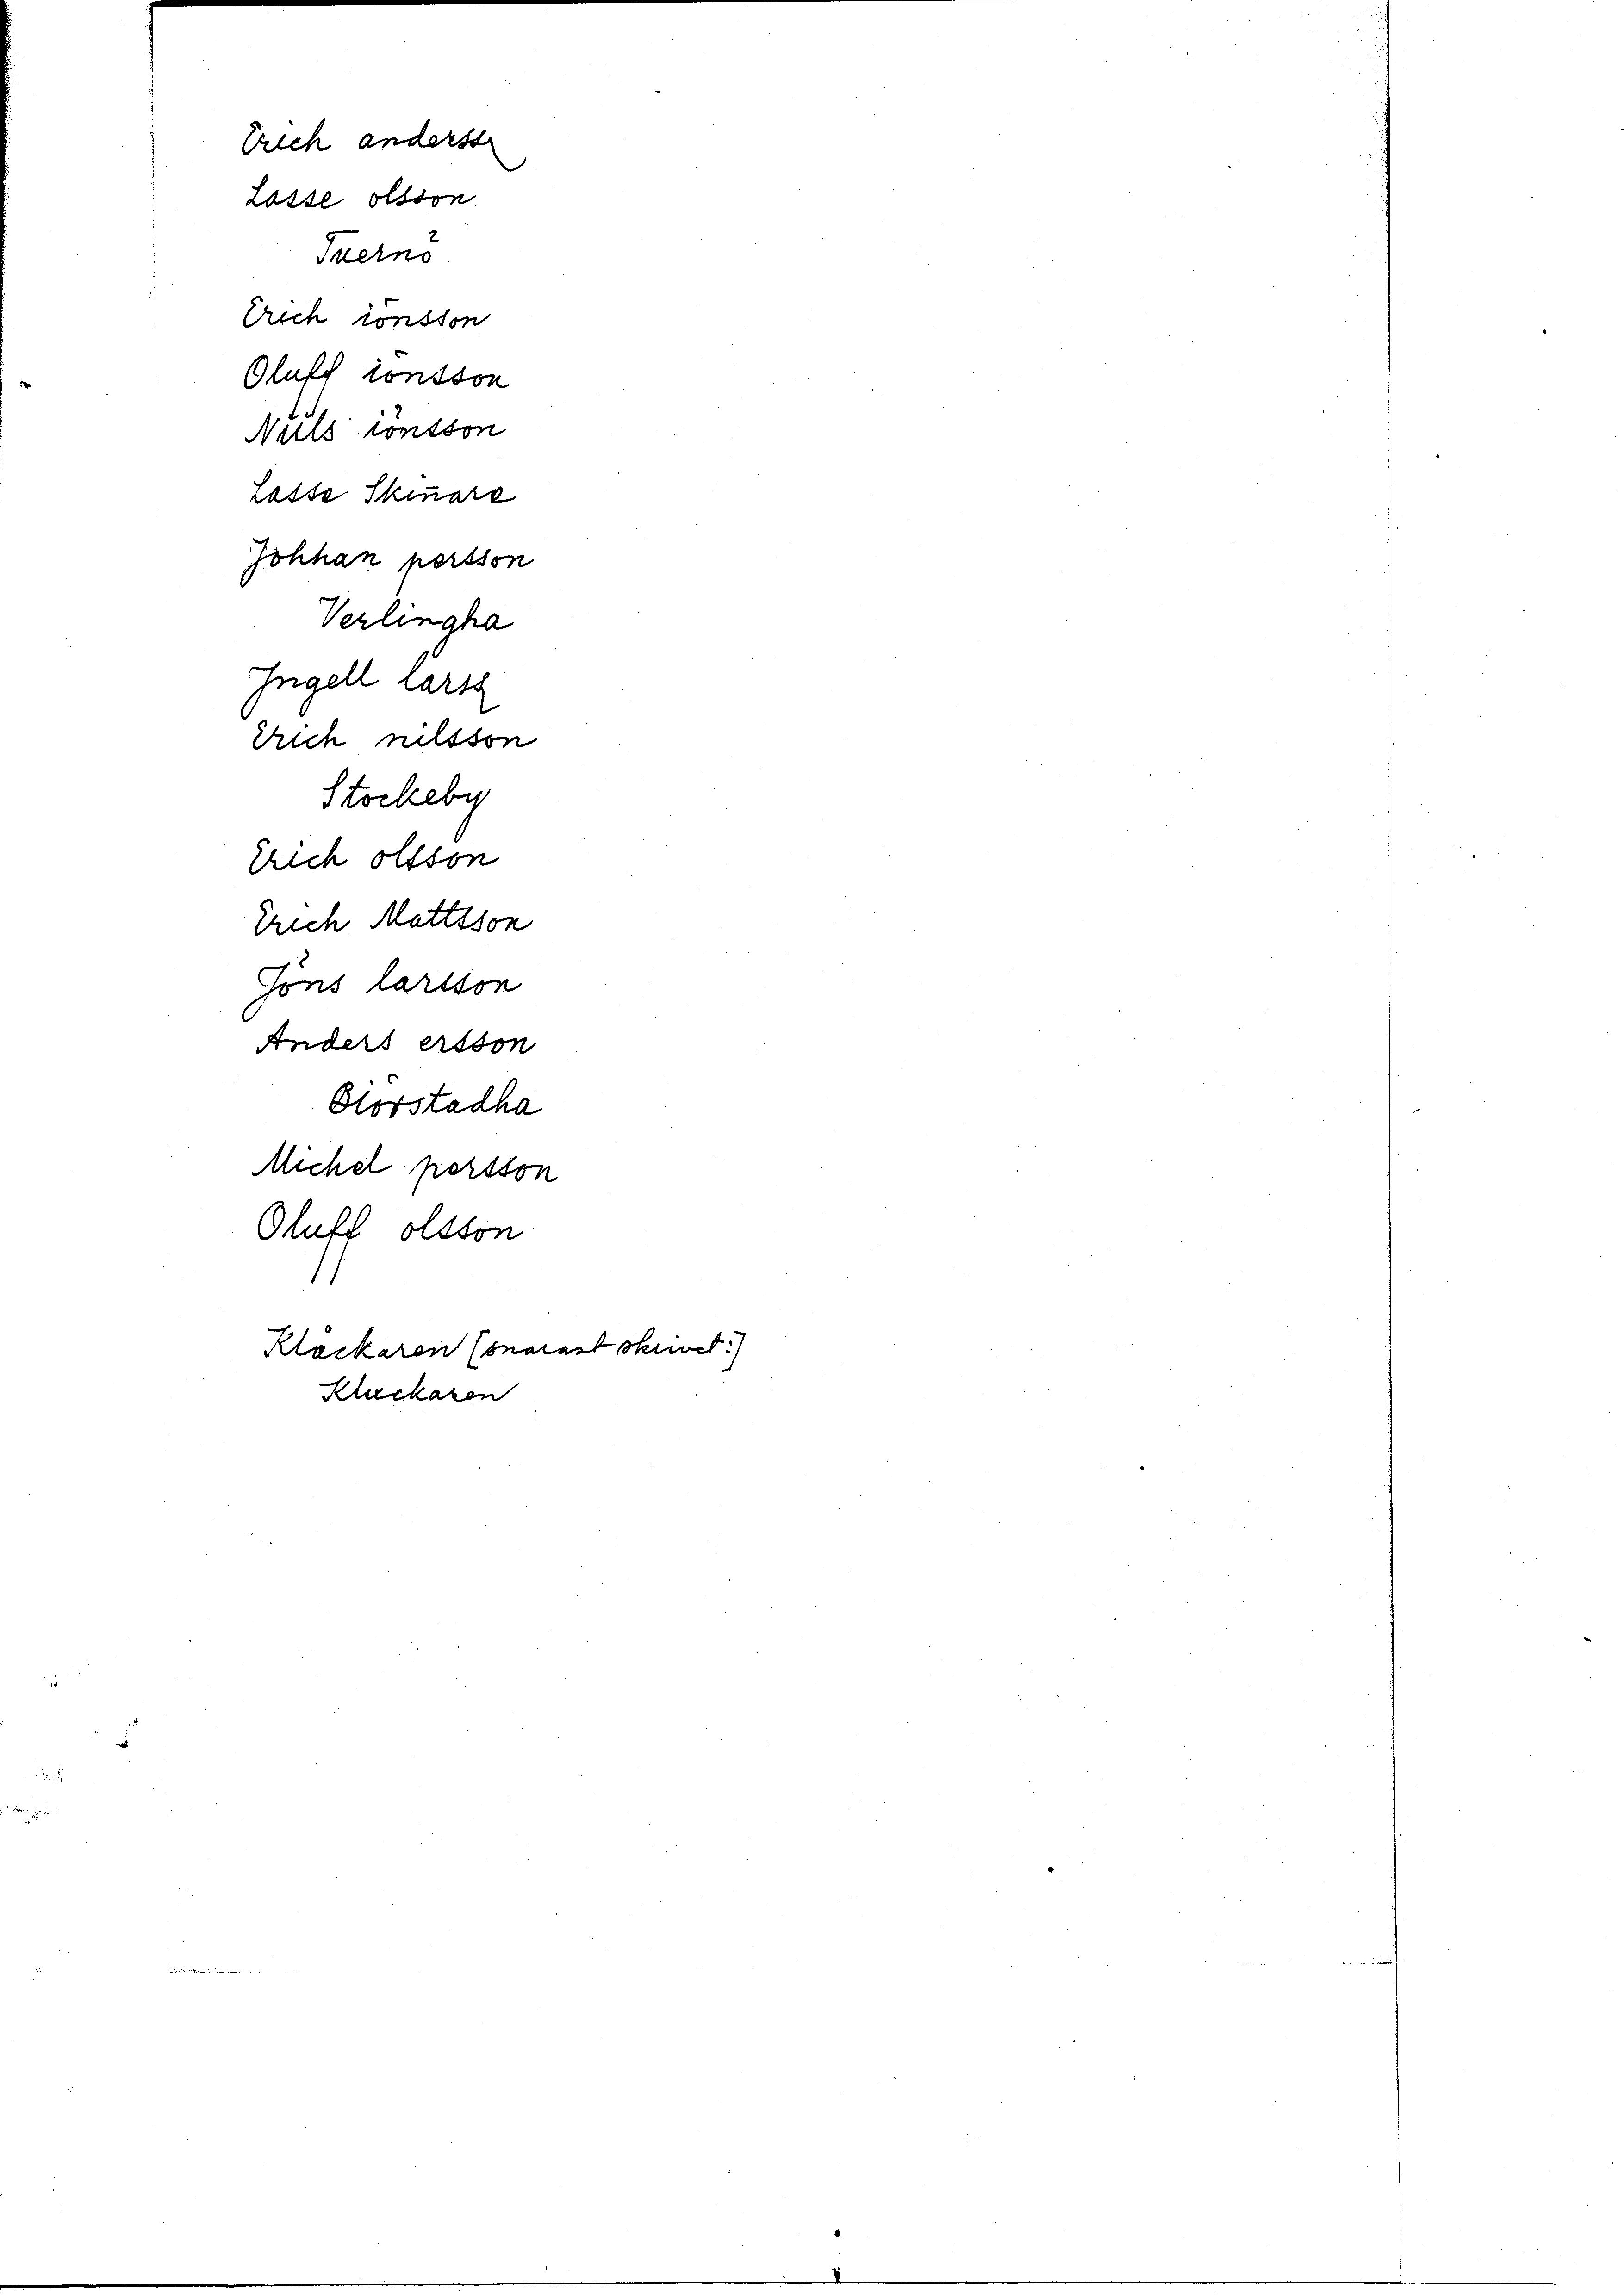 Erich anderss
Lasse olsson
Tuernö
Erich iönsson
Oluff iönsson
Niils iönsson
Lasse Skin̄are
Johhan persson
Verlingha
Ingell larss
Erich nilsson
Stockeby
Erich olsson
Erich Mattsson
Jöns larsson
Anders ersson
Biörstadha
Michel persson
Oluff olsson
Klåckaren (snarast skrivet:)
Kluckaren